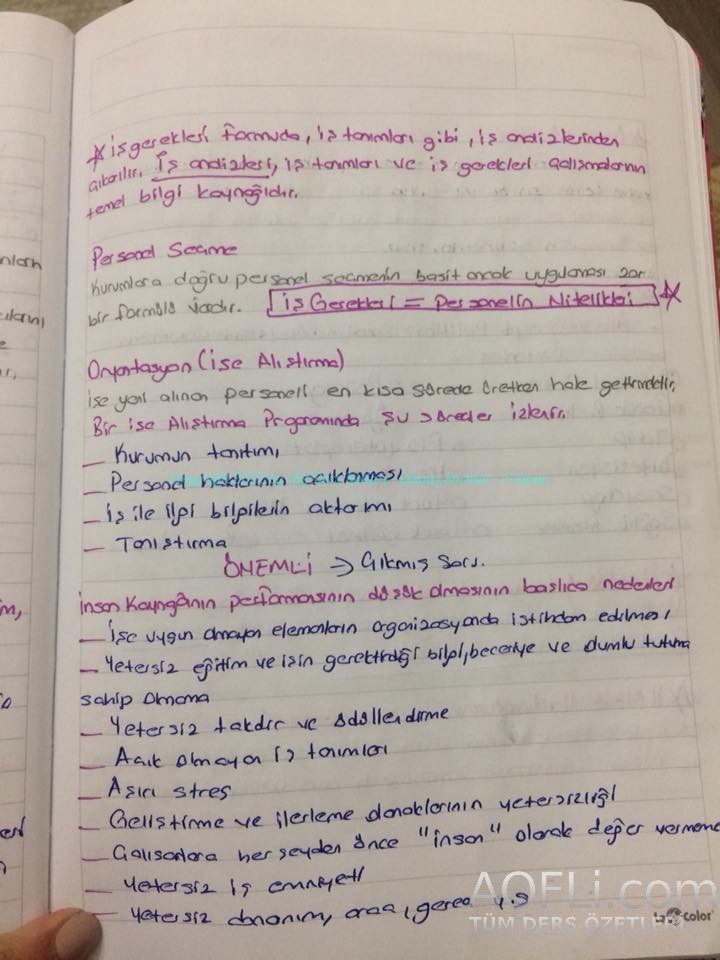 * iş gerekleri formuda, iş tanımları gibi, iş analizlerinden
çıkarılır. İş analizleri, iş tanımları ve iş gerekleri çalışmalarının
temel bilgi kaynağıdır.
Personel Seçme
Kurumlara doğru personel seçmenin basit ancak uygulaması zor
bir formülü vardır. İş Gerekleri = Personelin Nitelikleri *
Oryantasyon (işe Alıştırma)
işe yeni alınan personeli en kısa sürede üretken hale getirmektir,
Bir işe Alıştırma Programında şu süreçler izlenir.
– Kurumun tanıtımı
– Personel haklarının açıklanması
– iş ile ilgi bilgilerin aktarımı
– Tanıştırma
ÖNEMLİ → Çıkmış Soru.
insan Kaynağının performansının düşük olmasının başlıca nedenleri
– işe uygun olmayan elemanların organizasyonda istihdam edilmesi
– Yetersiz eğitim ve işin gerektirdiği bilgi, beceriye ve olumlu tutuma
sahip olmama
– Yetersiz takdir ve ödüllendirme
– Açık olmayan iş tanımları
– Aşırı stres
– Geliştirme ve ilerleme olanaklarının yetersizliği
– Çalışanlara herşeyden önce "insan" olarak değer vermeme
– Yetersiz iş emniyeti
– Yetersiz donanım, araç, gereç v.s
AOFLi.com
TÜM DERS ÖZETLERİ
La Color